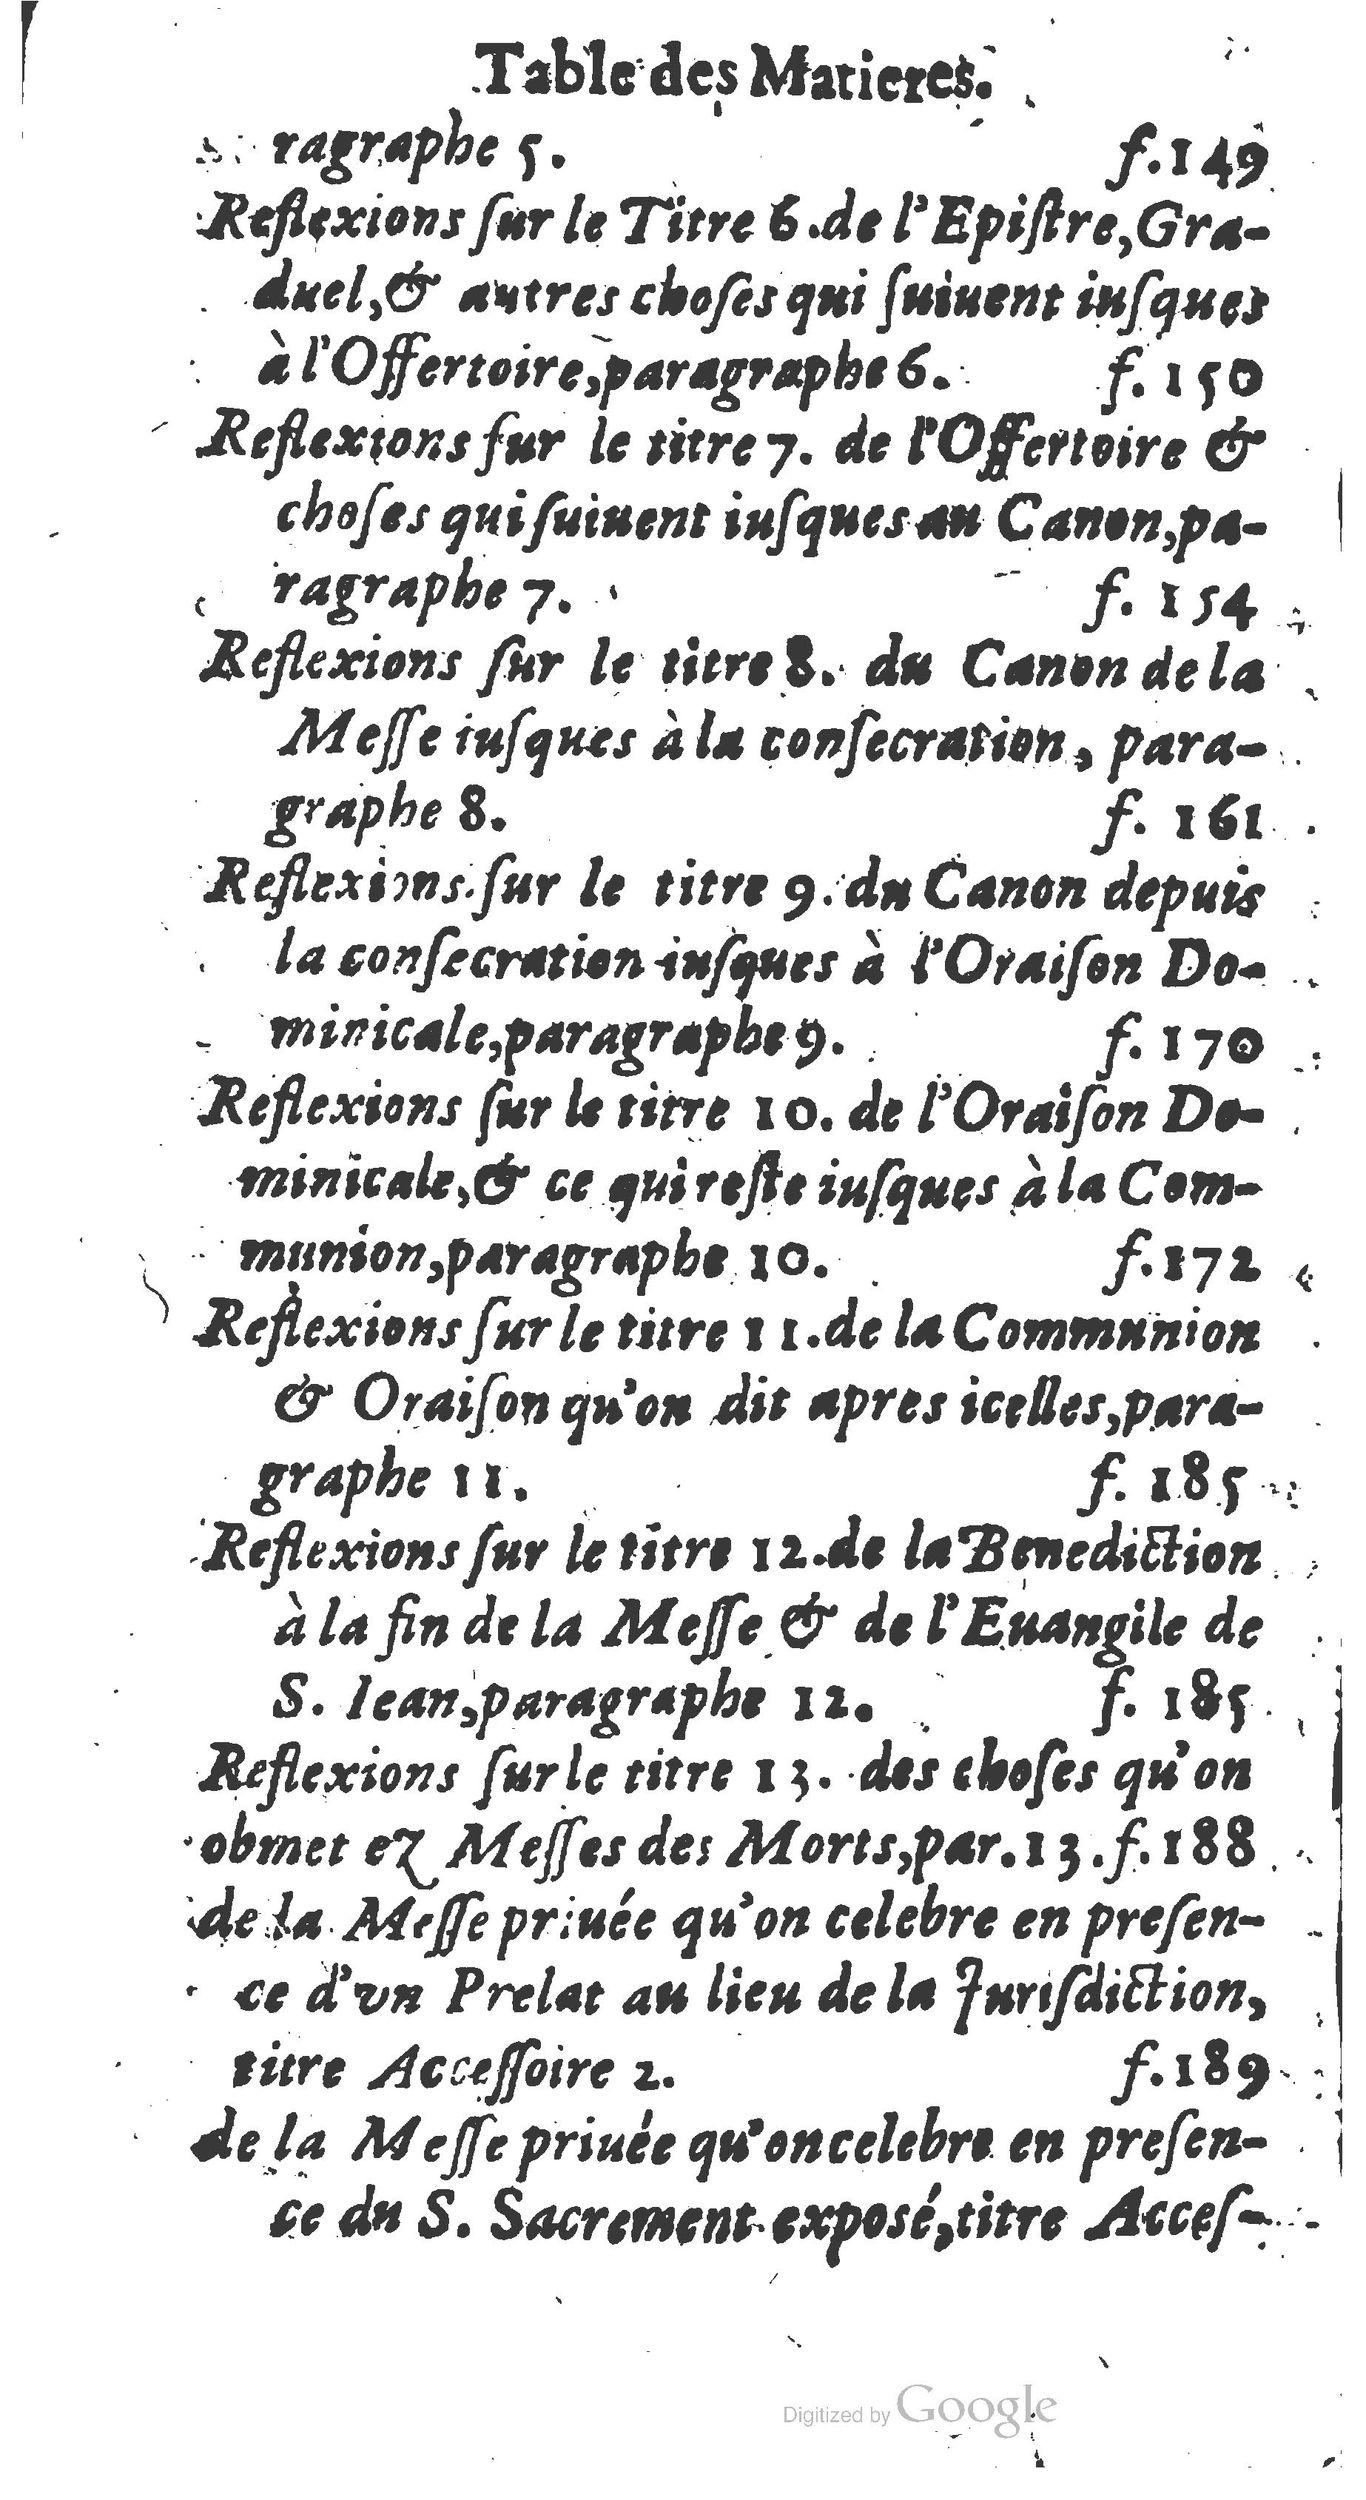 Table des Matieres.
ragraphe 5. f. 149
Reflexions ſur le Titre 6. de l'Epiſtre, Gra-
duel, & autres choſes qui ſuiuent iuſques
à l'Offertoire, paragraphe 6. f. 150
Reflexions ſur le titre 7. de l'Offertoire &
choſes qui ſuiuent iuſques au Canon, pa-
ragraphe 7. f. 154
Reflexions ſur le titre 8. du Canon de la
Meſſe iuſques à la conſecration, para-
graphe 8. f. 161
Reflexions ſur le titre 9. du Canon depuis
la conſecration iuſques à l'Oraiſon Do-
minicale, paragraphe 9. f. 170
Reflexions ſur le titre 10. de l'Oraiſon Do-
minicale, & ce qui reſte iuſques à la Com-
munion, paragraphe 10. f. 172
Reflexions ſur le titre 11. de la Communion
& Oraiſon qu'on dit apres icelles, para-
graphe 11. f. 185
Reflexions ſur le titre 12. de la Benediction
à la fin de la Meſſe & de l'Euangile de
S. Iean, paragraphe 12. f. 185
Reflexions ſur le titre 13. des choſes qu'on
obmet ez Meſſes des Morts, par. 13. f. 188
de la Meſſe priuée qu'on celebre en preſen-
ce d'vn Prelat au lieu de la Juriſdiction,
titre Acceſſoire 2. f. 189
de la Meſſe priuée qu'on celebre en preſen-
ce du S. Sacrement exposé, titre Acceſ-
Digitized by Google